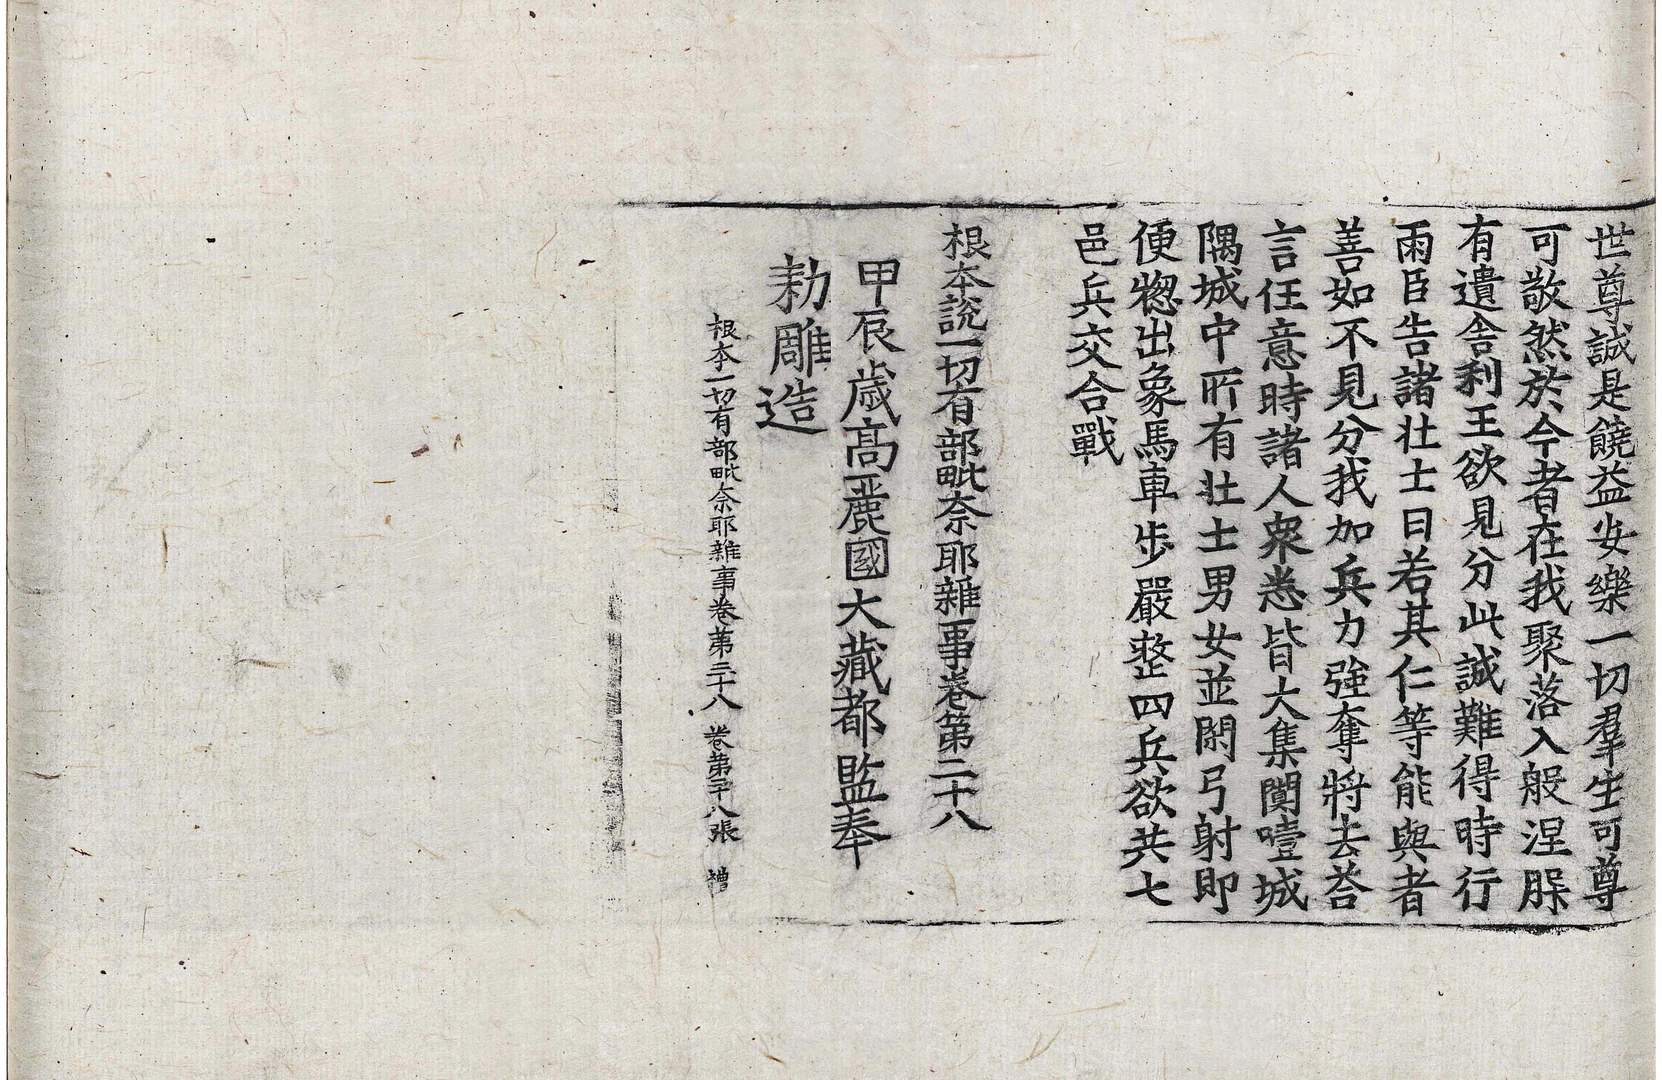 世尊誠是饒益安樂一切羣生可尊
可敬然於今者在我聚落入般涅槃
有遺舍利王欲見分此誠難得時行
雨臣告諸壯士曰若其仁等能與者
善如不見分我加兵力強奪將去荅
言任意時諸人衆悉皆大集闐噎城
隅城中所有壯士男女並閑弓射即
便揔出象馬車步嚴整四兵欲共七
邑兵交合戰
根本說一切有部毗奈耶雜事卷第三十八
甲辰歲高麗國大藏都監奉
勑雕造
根本一切有部毗奈耶雜事卷第三十八 卷第二十八張